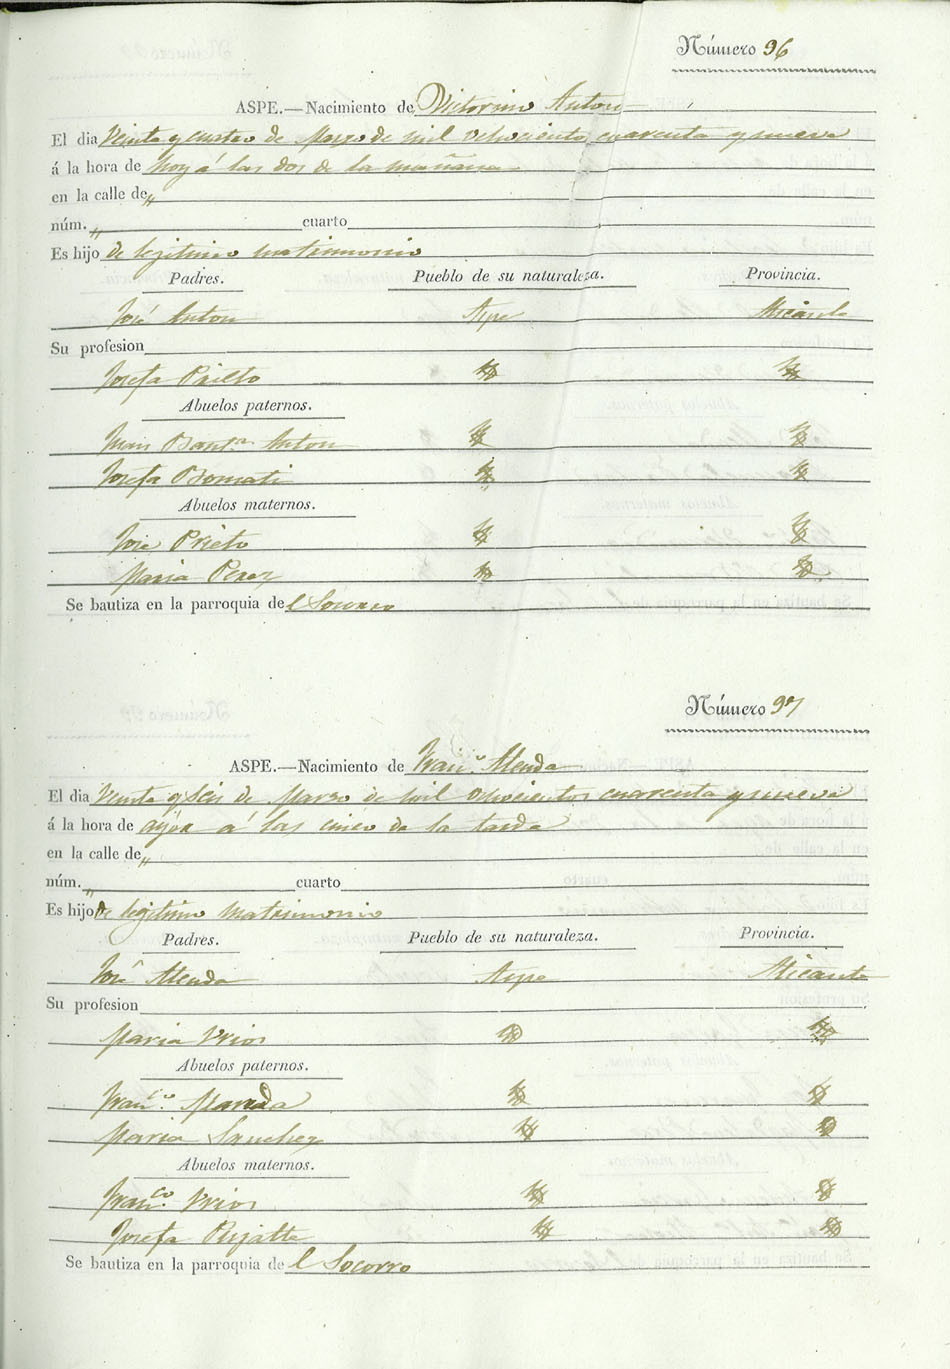 Número 96
ASPE.—Nacimiento de Victorino Anton
El dia Veinte y cuatro de Marzo de mil ochocientos cuarenta y nueve
á la hora de hoy á las dos de la mañana
en la calle de „
núm. „ cuarto
Es hijo de legitimo matrimonio
Padres. Pueblo de su naturaleza. Provincia.
José Anton Aspe Alicante
Su profesion
Josefa Prieto
Abuelos paternos.
Juan Bauta. Anton
Josefa Bonmati
Abuelos maternos.
Jose Prieto
Maria Perez
Se bautiza en la parroquia de l Socorro
Número 97
ASPE.—Nacimiento de Franco. Almda
El dia Veinte y seis de Marzo de mil ochocientos cuarenta y nueve
á la hora de ayer á las cinco de la tarde
en la calle de „
núm. „ cuarto
Es hijo de legitimo matrimonio
Padres. Pueblo de su naturaleza. Provincia.
José Aspe Alicante
Su profesion
Maria
Abuelos paternos.
Franco.
Maria Sanchez
Abuelos maternos.
Franco.
Josefa
Se bautiza en la parroquia de l Socorro